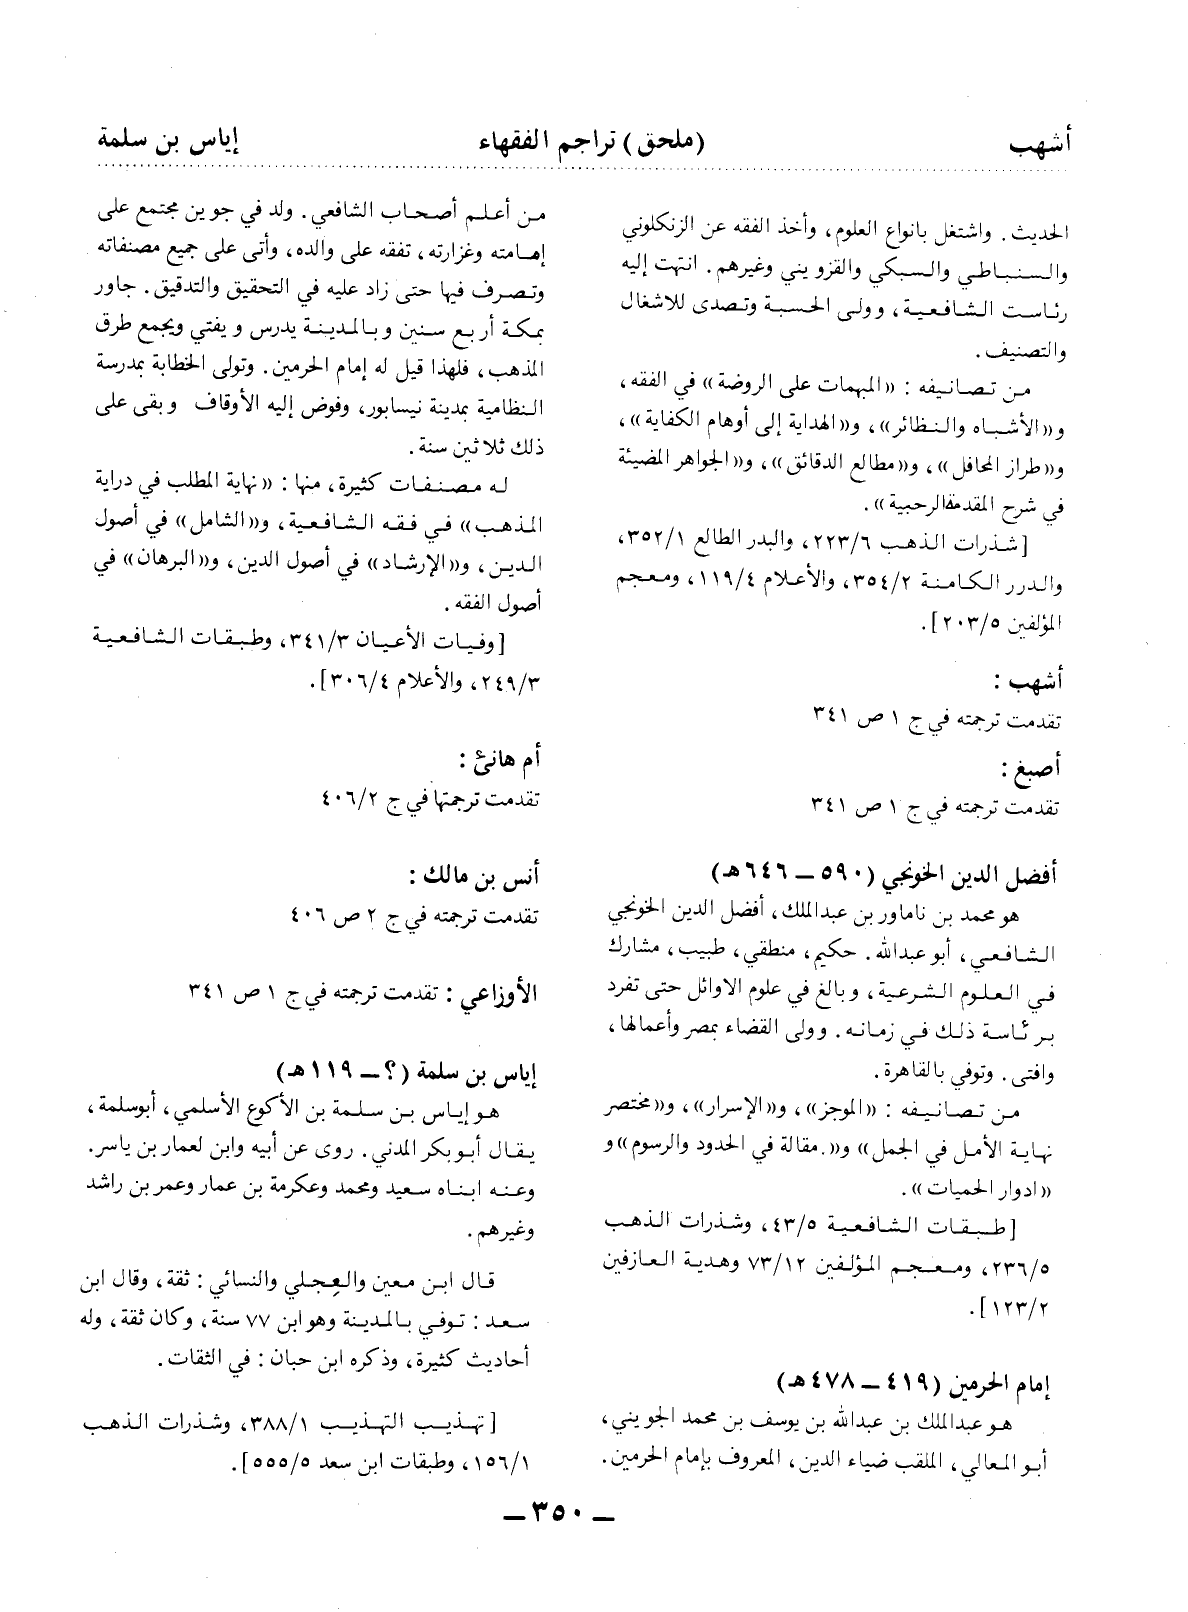 أشهب (ملحق) تراجم الفقهاء إياس بن سلمة
الحديث. واشتغل بانواع العلوم، وأخذ الفقه عن الزنكلوني
والسنباطي والسبكي والقزويني وغيرهم. انتهت إليه
رئاست الشافعية، وولى الحسبة وتصدى للاشغال
والتصنيف.
من تصانيفه: «المبهمات على الروضة» في الفقه،
و«الأشباه والنظائر»، و«الهداية إلى أوهام الكفاية»،
و«طراز المحافل»، و«مطالع الدقائق»، و«الجواهر المضيئة
في شرح المقدمة الرحبية».
[شذرات الذهب ٢٢٣/٦، والبدر الطالع ٣٥٢/١،
والدرر الكامنة ٣٥٤/٢، والأعلام ١١٩/٤، ومعجم
المؤلفين ٢٠٣/٥].
أشهب:
تقدمت ترجمته في ج ١ ص ٣٤١
أصبغ:
تقدمت ترجمته في ج ١ ص ٣٤١
أفضل الدين الخونجي (٥٩٠ ــ ٦٤٦هـ)
هو محمد بن ناماور بن عبدالملك، أفضل الدين الخونجي
الشافعي، أبو عبدالله. حكيم، منطقي، طبيب، مشارك
في العلوم الشرعية، وبالغ في علوم الاوائل حتى تفرد
برئاسة ذلك في زمانه. وولى القضاء بمصر وأعمالها،
وافتى. وتوفي بالقاهرة.
من تصانيفه: «الموجز»، و«الإسرار»، و«مختصر
نهاية الأمل في الجمل» و«.مقالة في الحدود والرسوم» و
«ادوار الحميات».
[طبقات الشافعية ٤٣/٥، وشذرات الذهب
٢٣٦/٥، ومعجم المؤلفين ٧٣/١٢ وهدية العازفين
١٢٣/٢].
إمام الحرمين (٤١٩ ــ ٤٧٨هـ)
هو عبدالملك بن عبدالله بن يوسف بن محمد الجويني،
أبو المعالي، الملقب ضياء الدين، المعروف بإمام الحرمين.
من أعلم أصحاب الشافعي. ولد في جوين مجتمع على
إمامته وغزارته، تفقه على والده، وأتى على جميع مصنفاته
وتصرف فيها حتى زاد عليه في التحقيق والتدقيق. جاور
بمكة أربع سنين وبالمدينة يدرس ويفتي ويجمع طرق
المذهب، فلهذا قيل له إمام الحرمين. وتولى الخطابة بمدرسة
النظامية بمدينة نيسابور، وفوض إليه الأوقاف وبقى على
ذلك ثلاثين سنة.
له مصنفات كثيرة، منها: «نهاية المطلب في دراية
المذهب» في فقه الشافعية، و«الشامل» في أصول
الدين، و«الإرشاد» في أصول الدين، و«البرهان» في
أصول الفقه.
[وفيات الأعيان ٣٤١/٣، وطبقات الشافعية
٢٤٩/٣، والأعلام ٣٠٦/٤].
أم هانئ:
تقدمت ترجمتها في ج ٤٠٦/٢
أنس بن مالك:
تقدمت ترجمته في ج ٢ ص ٤٠٦
الأوزاعي: تقدمت ترجمته في ج ١ ص ٣٤١
إياس بن سلمة (؟ ــ ١١٩هـ)
هو إياس بن سلمة بن الأكوع الأسلمي، أبوسلمة،
يقال أبو بكر المدني. روى عن أبيه وابن لعمار بن ياسر.
وعنه ابناه سعيد ومحمد وعكرمة بن عمار وعمر بن راشد
وغيرهم.
قال ابن معين والعجلي والنسائي: ثقة، وقال ابن
سعد: توفي بالمدينة وهو ابن ٧٧ سنة، وكان ثقة، وله
أحاديث كثيرة، وذكره ابن حبان: في الثقات.
[تهذيب التهذيب ٣٨٨/١، وشذرات الذهب
١٥٦/١، وطبقات ابن سعد ٥٥٥/٥].
ــ ٣٥٠ ــ